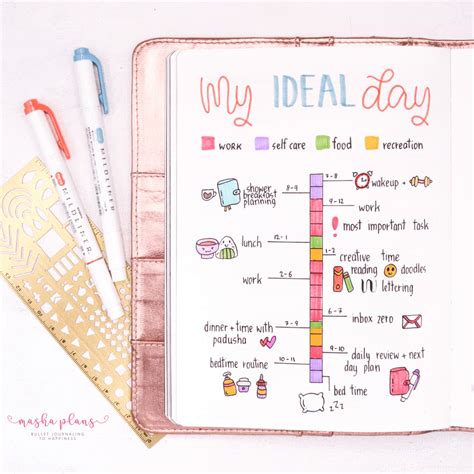 my IDEAL day
WORK self care food recreation
7-8 wakeup +
8-9 shower
breakfast
planning
9-12
work
! most important task
lunch
1-2
creative time
reading doodles
lettering
work 2-6
6-7 inbox zero
dinner + time with 7-9
padusha
9-10 daily review + next
day plan
bedtime routine 10-11
bed time
zzz
MILDLINER
MILDLINER
masha plans
BULLET JOURNALING
TO HAPPINESS